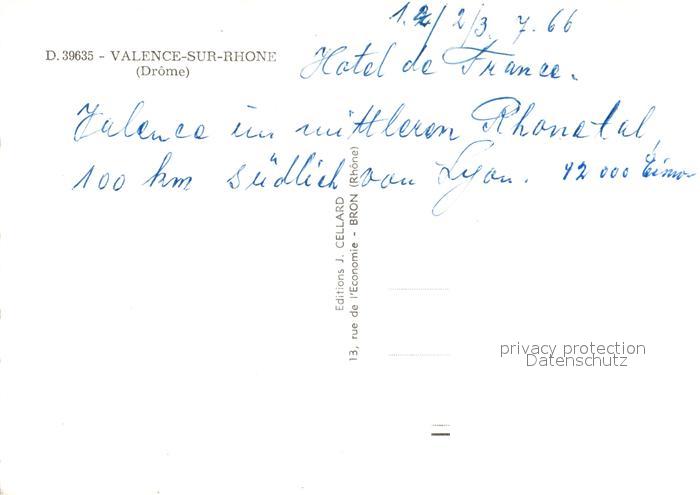 1. 2/2/3. 7. 66
D. 39635 - VALENCE-SUR-RHONE
(Drôme)
Hotel de France.
Valence im mittleren Rhonetal,
100 km südlich von Lyon. 42 000 Einw
Editions J. CELLARD
13, rue de l'Economie - BRON (Rhône)
privacy protection
Datenschutz